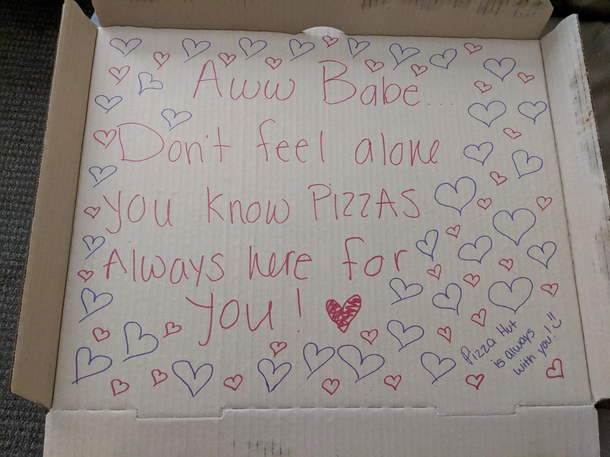 Aww Babe...
Don't feel alone
you know PIZZAS
Always here for
you!
Pizza Hut
is always
with you!